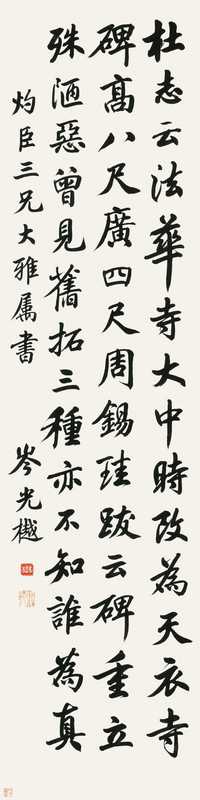 杜志云法華寺大中時改為天衣寺
碑高八尺廣四尺周錫珪跋云碑重立
殊陋惡曾見舊拓三種亦不知誰為真
灼臣三兄大雅属書
岑光樾